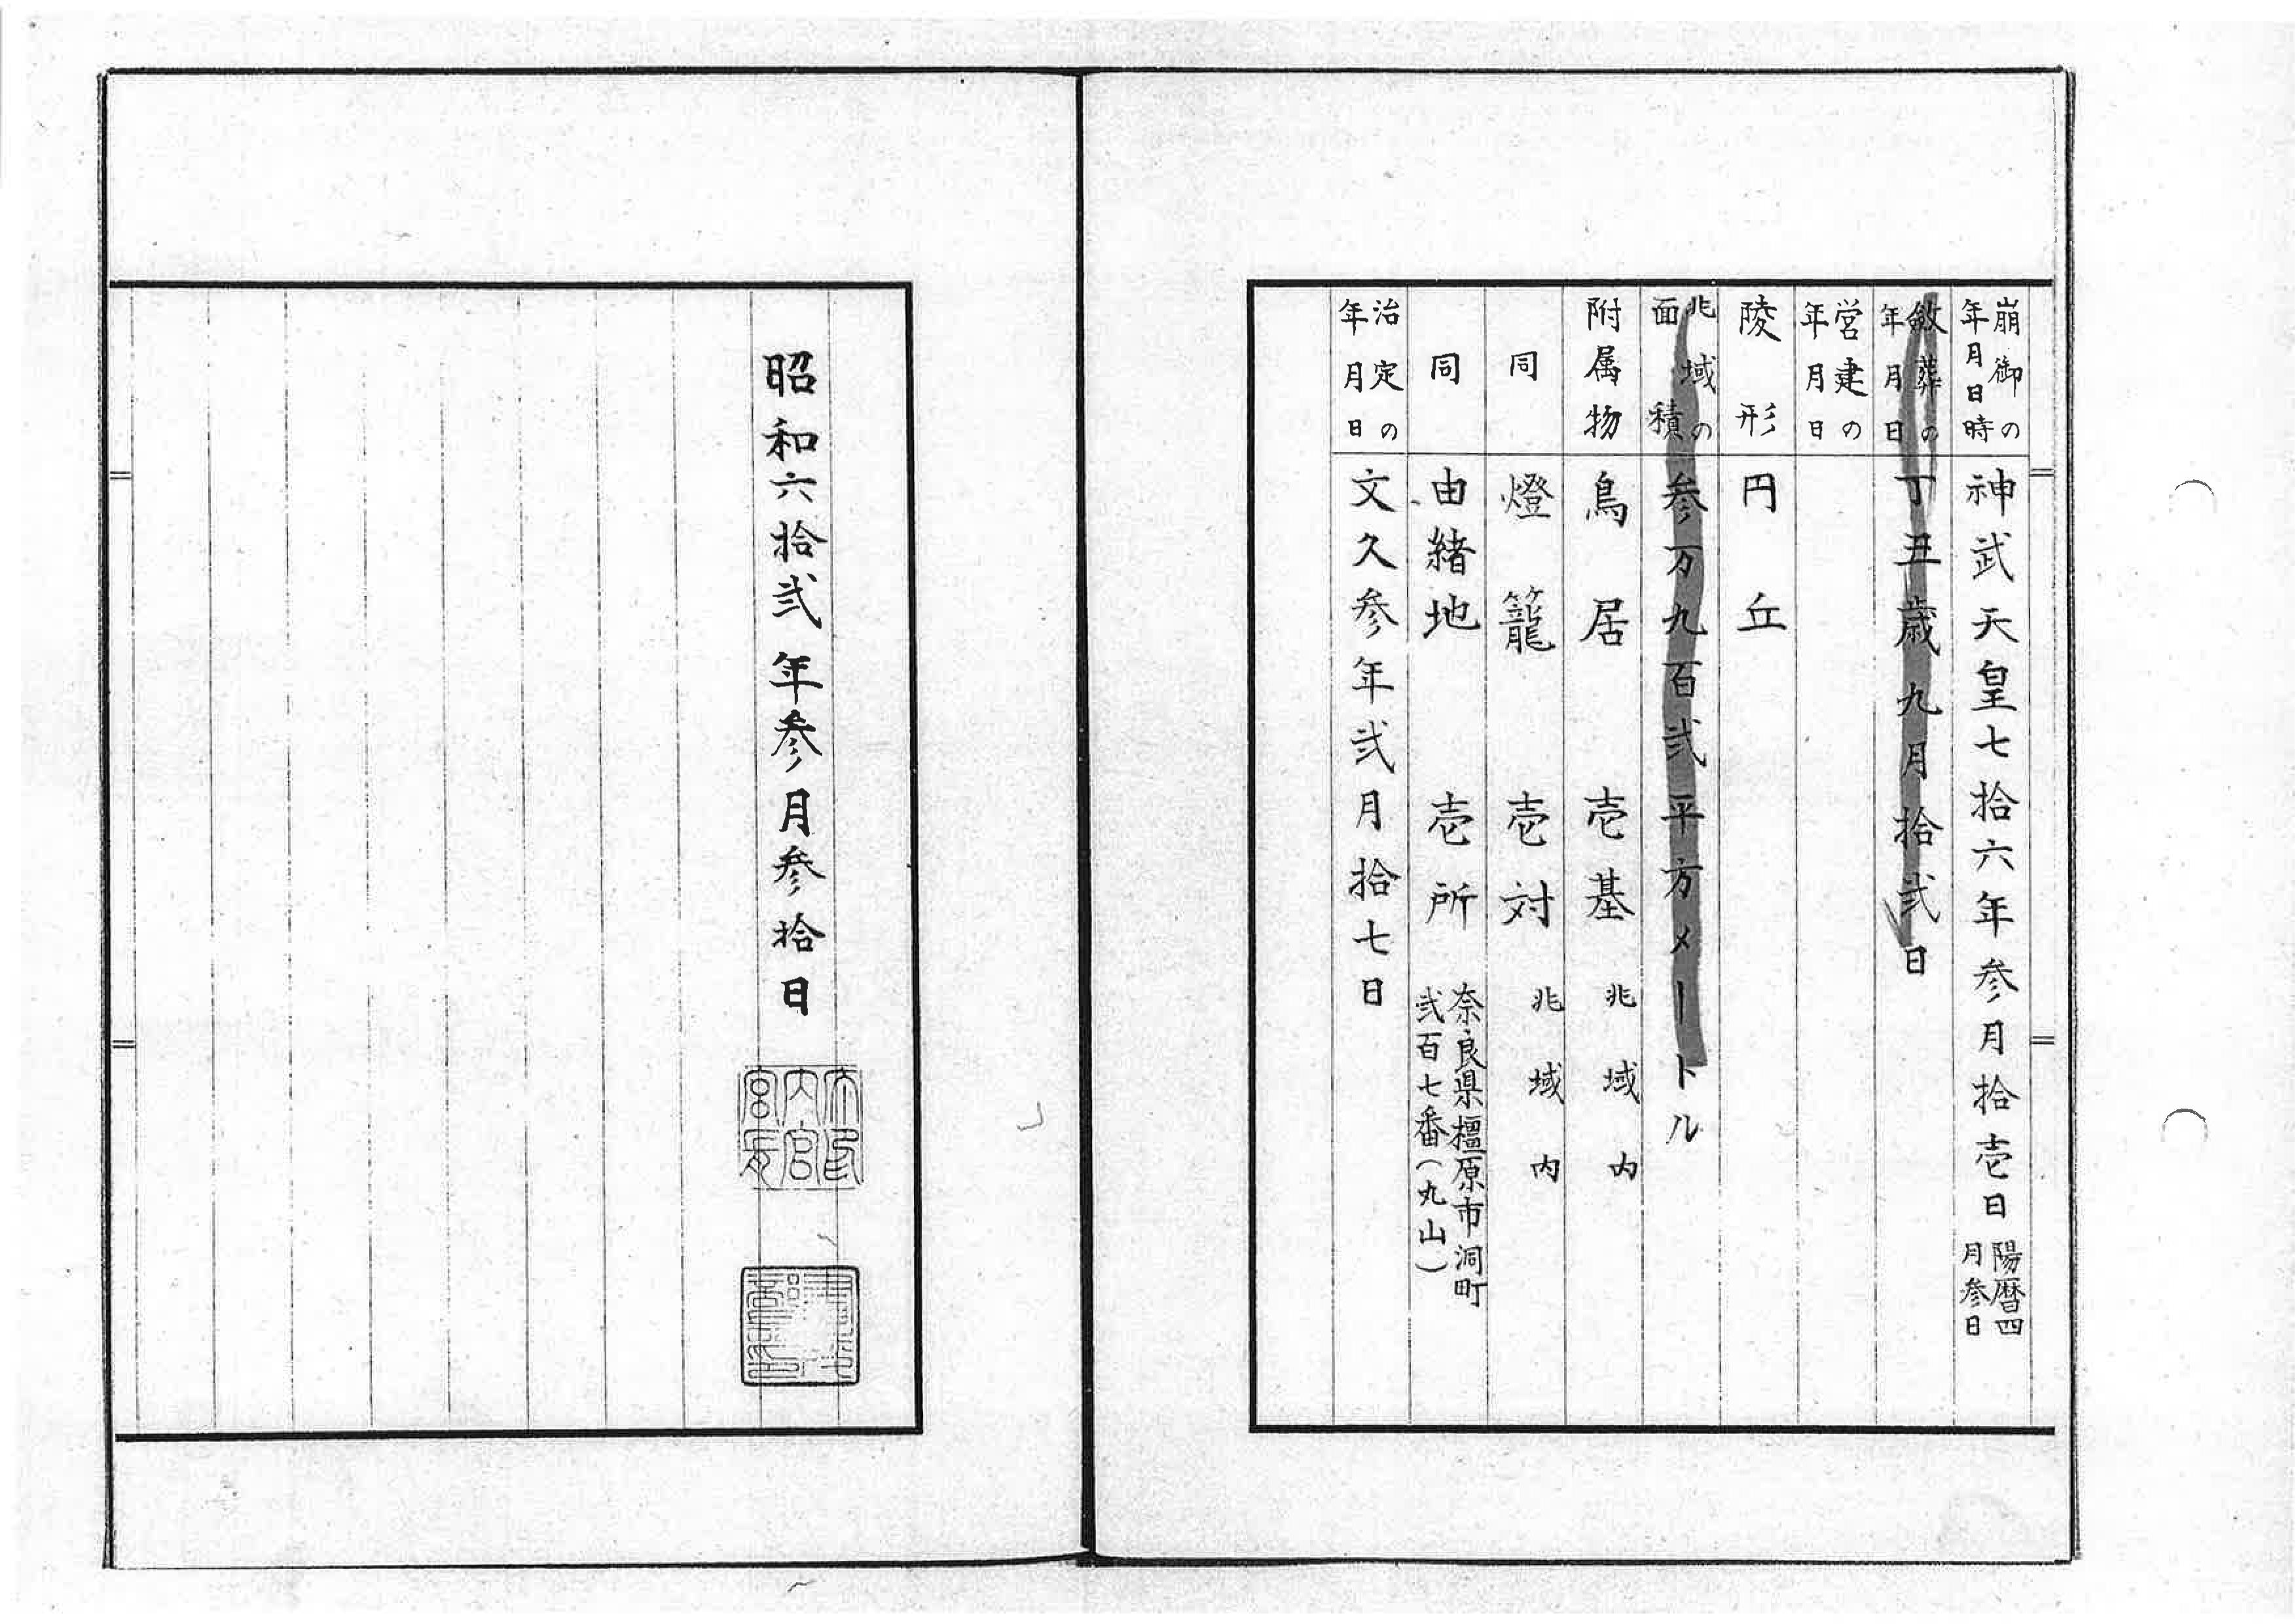 崩御の年月日時 神武天皇七拾六年参月拾壱日 陽暦四月参日
斂葬の年月日 丁丑歳九月拾弐日
営建の年月日
陵形 円丘
兆域の面積 参万九百弐平方メートル
附属物 鳥居 壱基 兆域内
同 燈籠 壱対 兆域内
同 由緒地 壱所 奈良県橿原市洞町弐百七番(丸山)
治定の年月日 文久参年弐月拾七日
昭和六拾弐年参月参拾日